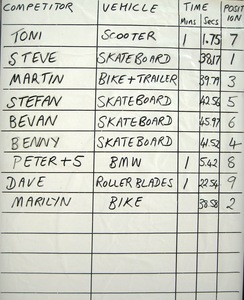 COMPETITOR VEHICLE TIME POSITION
Mins Secs
TONI SCOOTER 1 1.75 7
STEVE SKATEBOARD 38.17 1
MARTIN BIKE + TRAILER 39.79 3
STEFAN SKATEBOARD 42.56 5
BEVAN SKATEBOARD 45.97 6
BENNY SKATEBOARD 41.52 4
PETER + 5 BMW 1 5.42 8
DAVE ROLLER BLADES 1 22.54 9
MARILYN BIKE 38.58 2